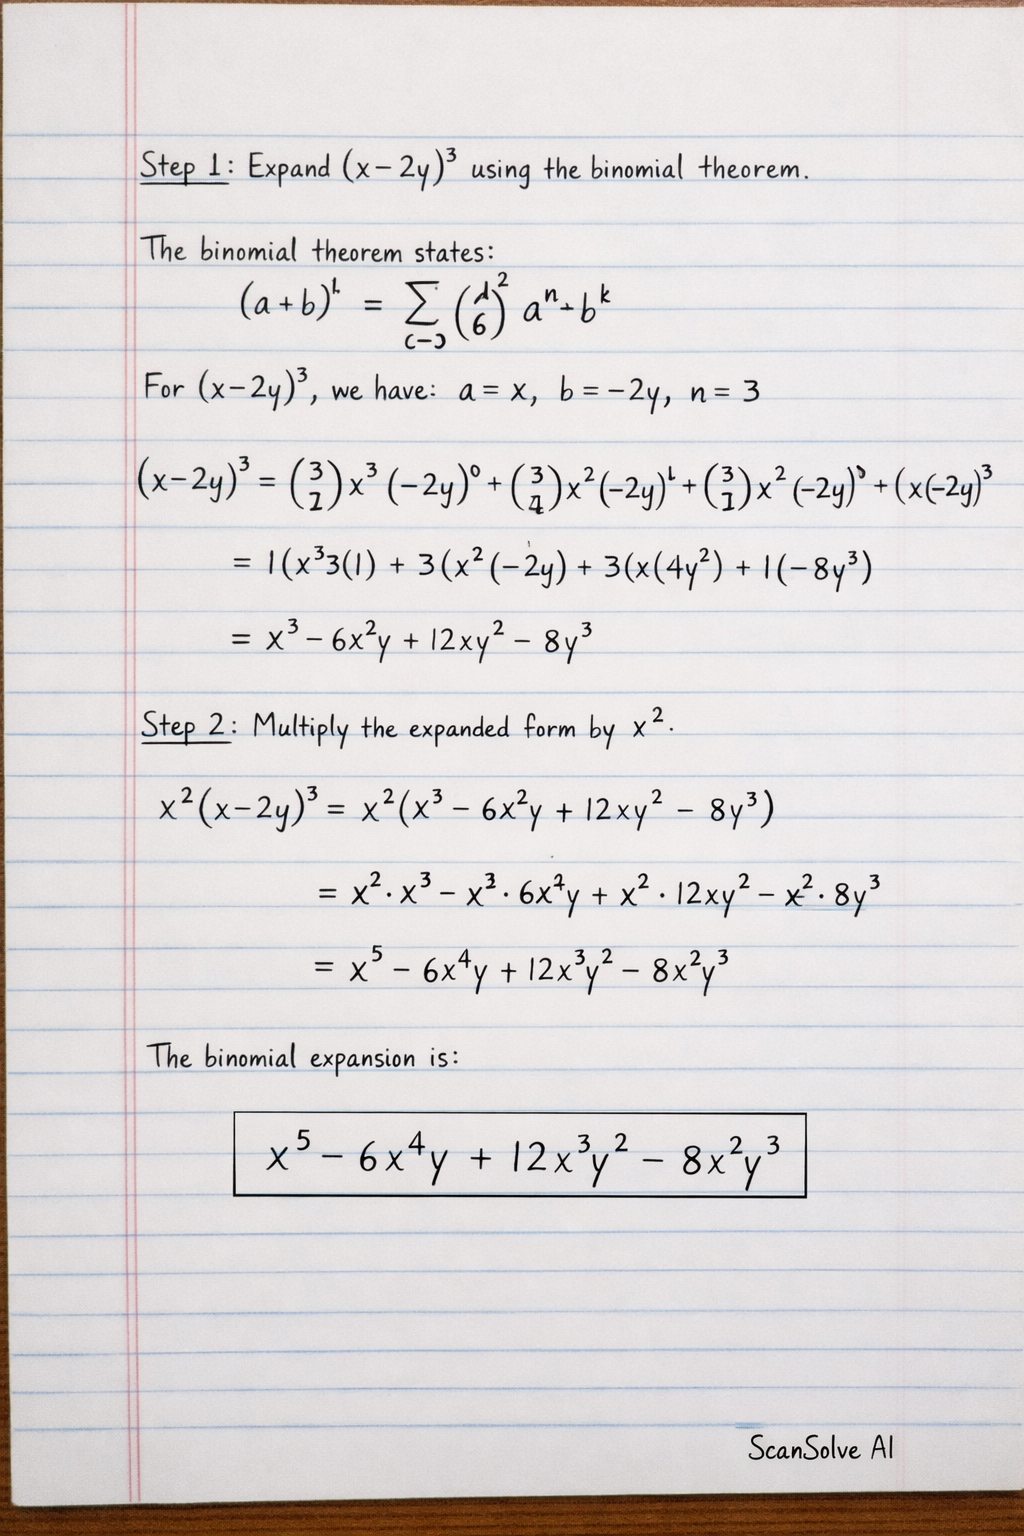 Step 1: Expand (x − 2y)³ using the binomial theorem.
The binomial theorem states:
(a + b) = ∑ a b^k
For (x−2y)³, we have: a = x, b = −2y, n = 3
(x−2y)³ = (3 1) x³ (−2y)⁰ + (3 4) x² (−2y) + (3 1) x² (−2y) + (x(−2y)³
= 1(x³3(1) + 3(x²(−2y) + 3(x(4y²) + 1(−8y³)
= x³ − 6x²y + 12xy² − 8y³
Step 2: Multiply the expanded form by x².
x²(x−2y)³ = x²(x³ − 6x²y + 12xy² − 8y³)
= x² · x³ − x³ · 6x²y + x² · 12xy² − x² · 8y³
= x⁵ − 6x⁴y + 12x³y² − 8x²y³
The binomial expansion is:
x⁵ − 6x⁴y + 12x³y² − 8x²y³
ScanSolve AI